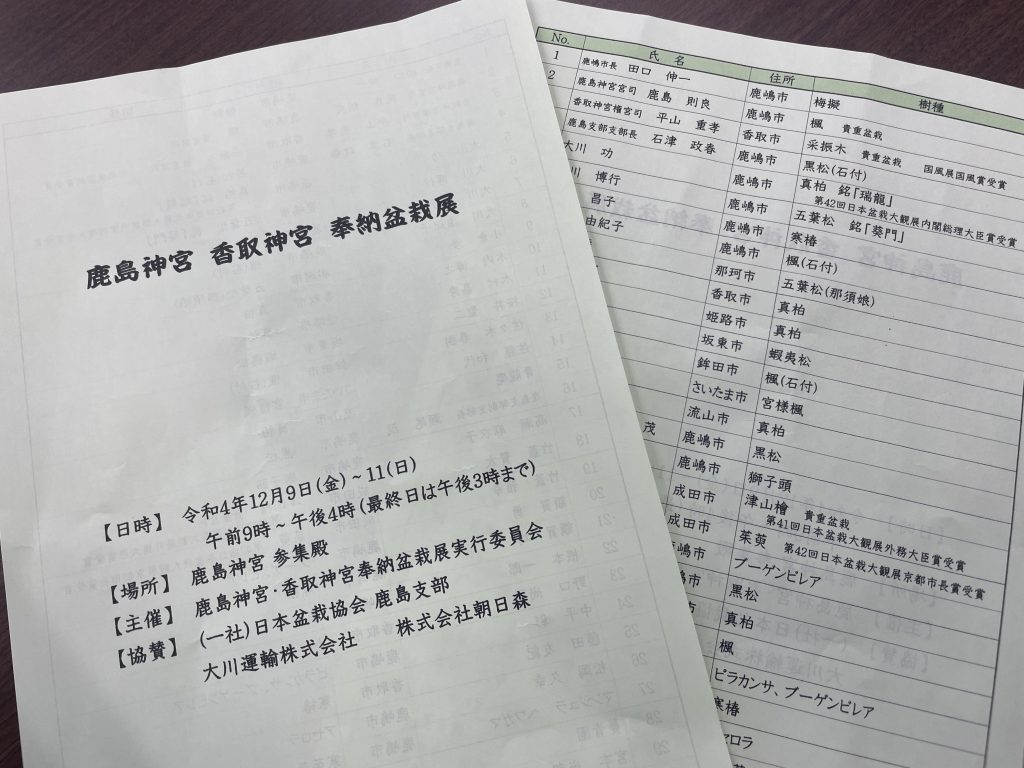 鹿島神宮 香取神宮 奉納盆栽展
【日時】 令和4年12月9日(金)~11(日)
午前9時~午後4時(最終日は午後3時まで)
【場所】 鹿島神宮 参集殿
【主催】 鹿島神宮・香取神宮奉納盆栽展実行委員会
【協賛】 (一社)日本盆栽協会 鹿島支部
大川運輸株式会社 株式会社朝日森
No. 氏名 住所 樹種
1 鹿嶋市長 田口 伸一 鹿嶋市 梅擬
2 鹿島神宮宮司 鹿島 則良 鹿嶋市 楓 貴重盆栽
香取神宮権宮司 平山 重孝 香取市 采振木 貴重盆栽 国風展国風賞受賞
鹿島支部支部長 石津 政春 鹿嶋市 黒松(石付)
大川 功 鹿嶋市 真柏 銘「瑞龍」
第42回日本盆栽大観展内閣総理大臣賞受賞
川 博行 鹿嶋市 五葉松 銘「葵門」
昌子 鹿嶋市 寒椿
由紀子 鹿嶋市 楓(石付)
那珂市 五葉松(那須娘)
香取市 真柏
姫路市 真柏
坂東市 蝦夷松
鉾田市 楓(石付)
さいたま市 宮様楓
流山市 真柏
茂 鹿嶋市 黒松
鹿嶋市 獅子頭
成田市 津山檜 貴重盆栽
第41回日本盆栽大観展外務大臣賞受賞
成田市 茱萸 第42回日本盆栽大観展京都市長賞受賞
鹿嶋市 ブーゲンビレア
嶋市 黒松
市 真柏
楓
ピラカンサ、ブーゲンビレア
寒椿
ロラ